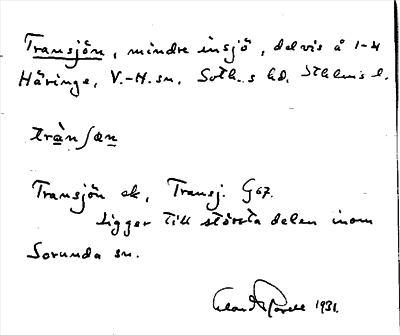 Transjön, mindre insjö, delvis å 1-4
Häringe, V.-H. sn. Soth.s hd. Sthlms l.
tràn ʃœn
Transjön ek, Transj. G 67.
Ligger till största delen inom
Sorunda sn.
1931.